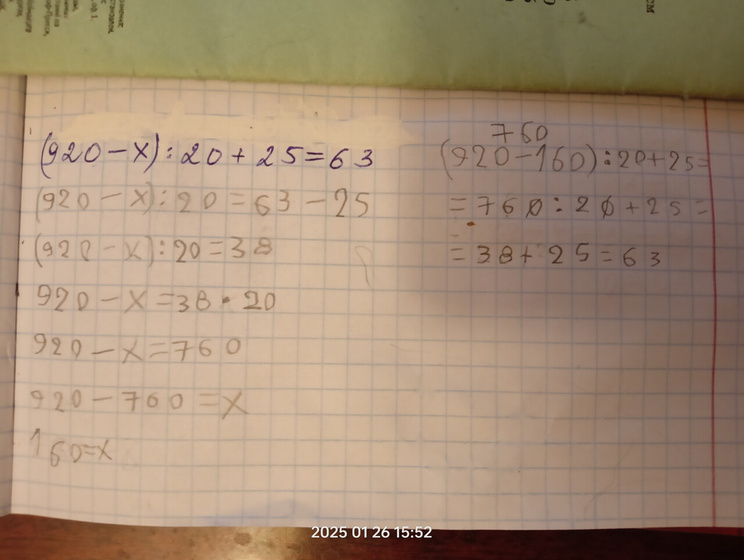 (920 - x) : 20 + 25 = 63
(920 - x) : 20 = 63 - 25
(920 - x) : 20 = 38
920 - x = 38 • 20
920 - x = 760
920 - 760 = x
160 = x
760
(920 - 160) : 20 + 25 =
= 760 : 20 + 25 =
= 38 + 25 = 63
2025 01 26 15:52